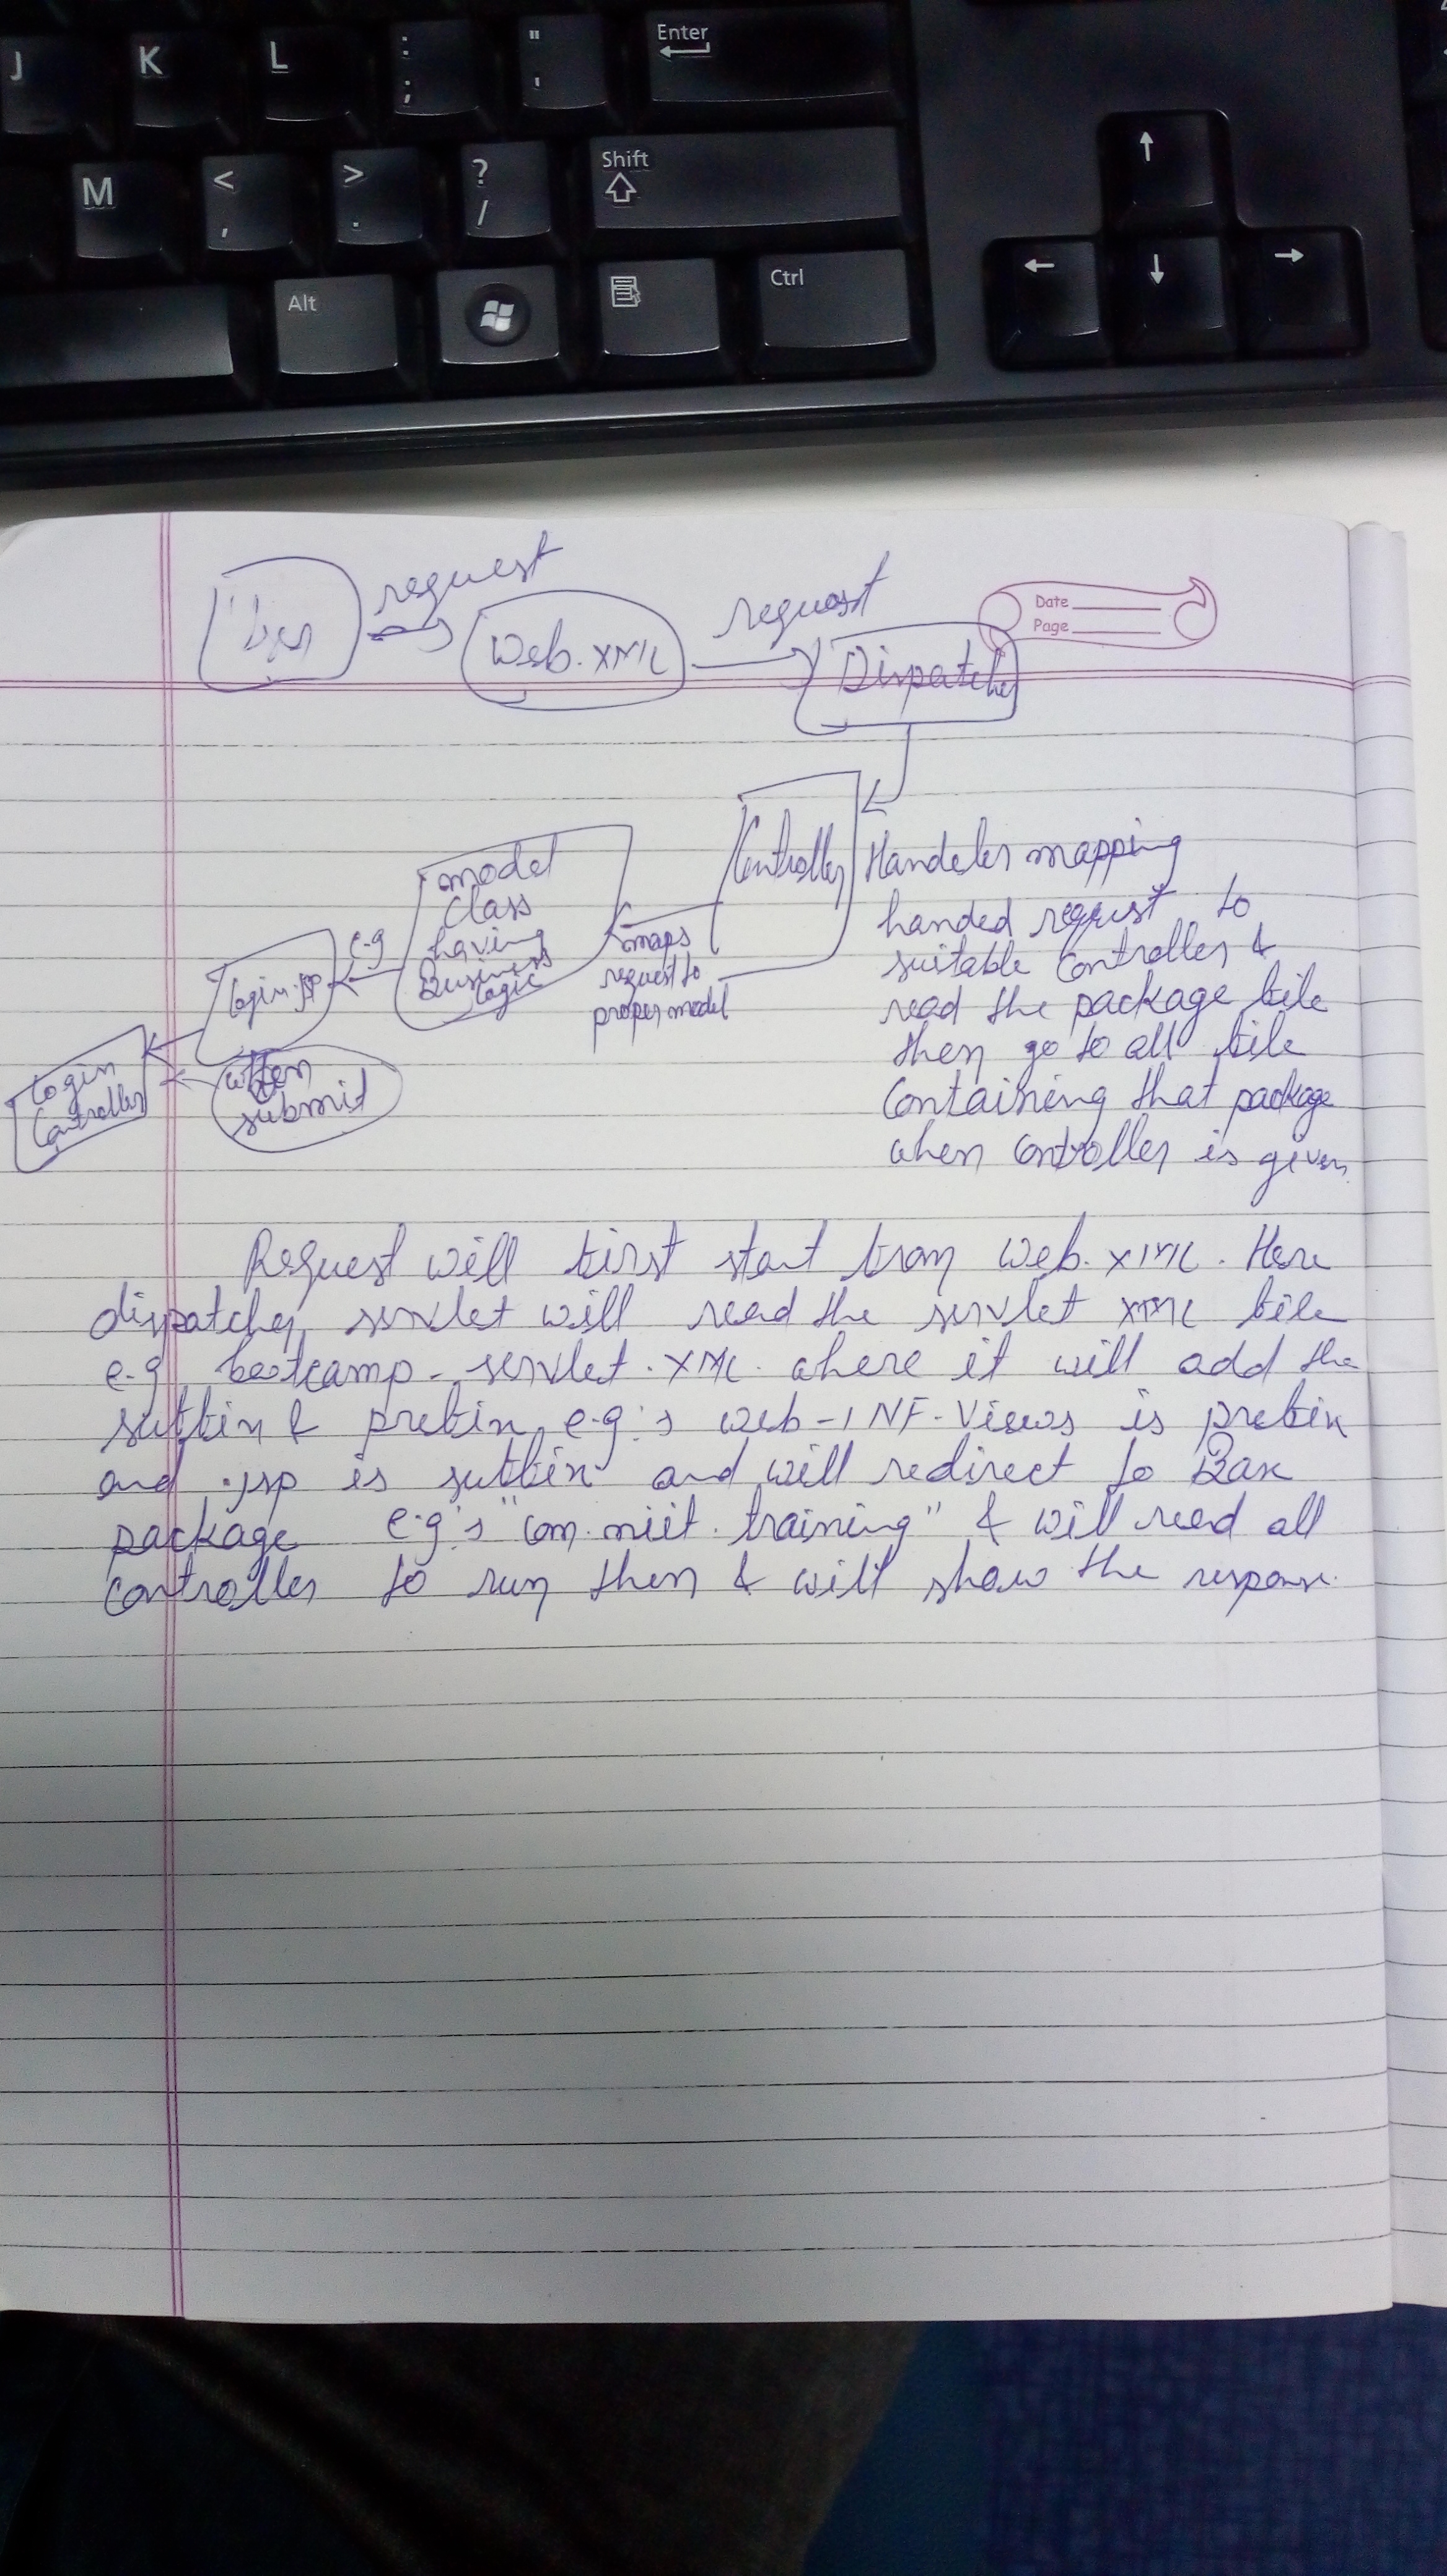 J K L : ; " ' Enter
M < , > . ? / Shift
Alt Ctrl
Date
Page
User request Web.XML request Dispatcher
Controller
Handeler mapping
handed request to
suitable controller &
read the package file
then go to all file
containing that package
when controller is given
maps
request to
proper model
model
class
having
Business
logic
e.g
login.jsp
when
submit
login
controller
Request will first start from web.XML. Here
dispatcher servlet will read the servlet XML file
e.g bootcamp-servlet.XML where it will add the
suffix & prefix, e.g's web-INF-Views is prefix
and .jsp is suffix and will redirect to Base
package e.g's "com.niit.training" & will read all
controller to run then & will show the response.